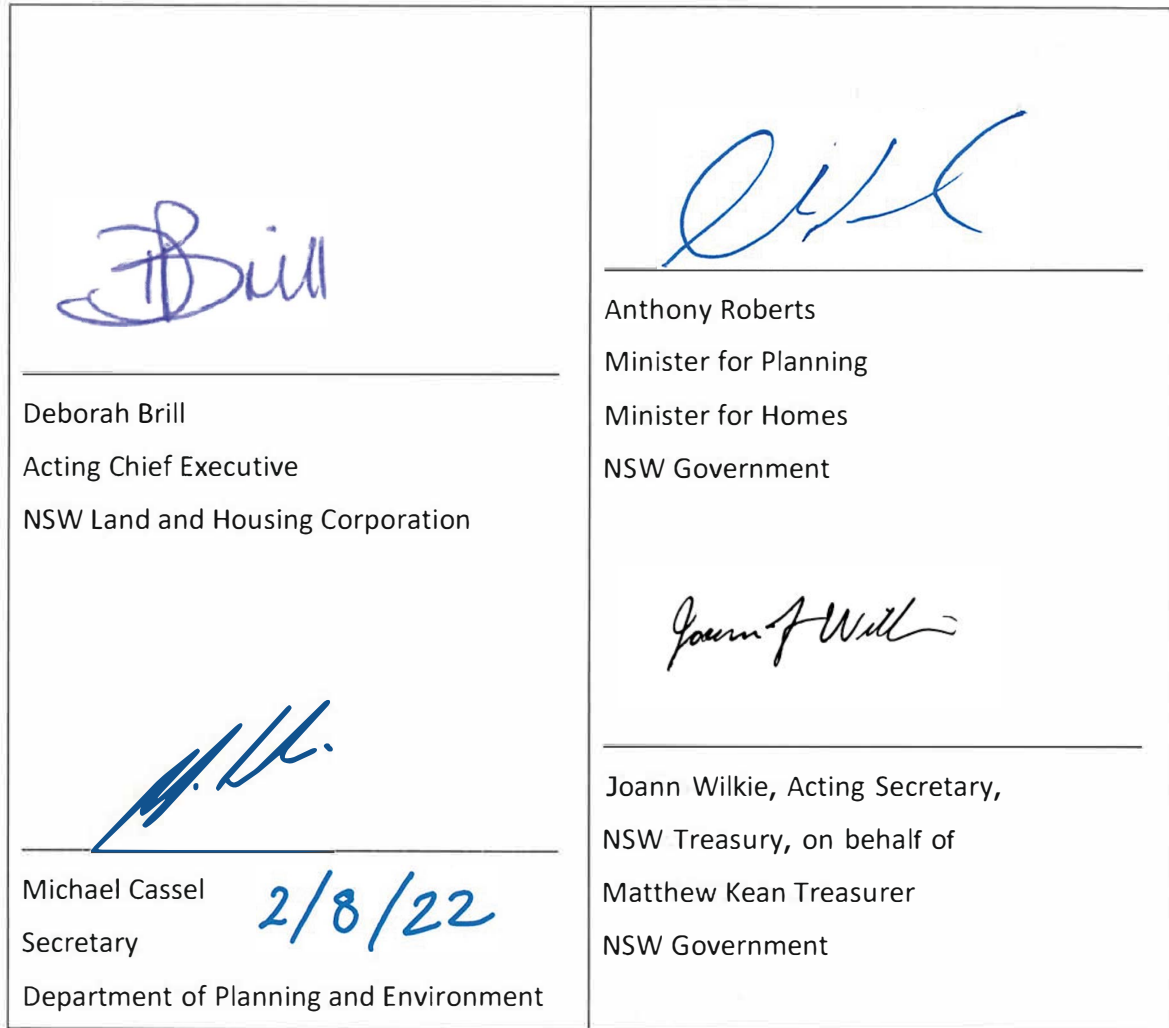 Brill
Deborah Brill
Acting Chief Executive
NSW Land and Housing Corporation
Michael Cassel
2/8/22
Secretary
Department of Planning and Environment
Anthony Roberts
Minister for Planning
Minister for Homes
NSW Government
Joann Wilkie, Acting Secretary,
NSW Treasury, on behalf of
Matthew Kean Treasurer
NSW Government